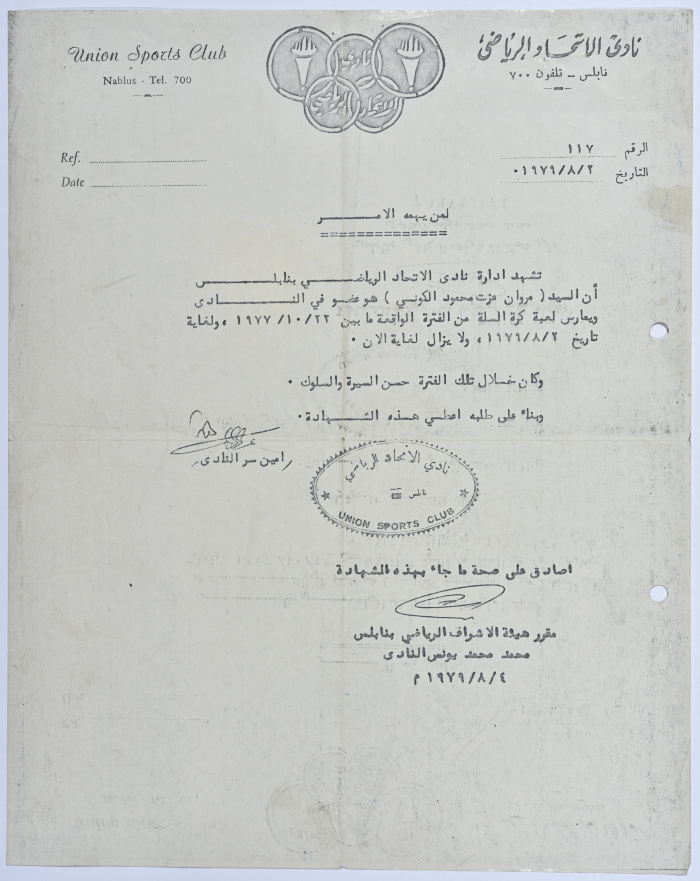 Union Sports Club
Nablus - Tel. 700
نادي الاتحاد الرياضي
نادي الاتحاد الرياضي
نابلس – تلفون ٧٠٠
Ref.
Date
الرقم ١١٧
التاريخ ١٩٧٩/٨/٢٠
لمن يهمه الامـــــــر
=============
تشهد ادارة نادى الاتحاد الرياضـــــي بنابلـــــــس
أن السيد ( مروان عزت محمود الكوني ) هو عضو في النـــــــــادى
ويمارس لعبة كرة السلة من الفترة الواقعة ما بين ١٩٧٧/١٠/٢٢ ، ولغاية
تاريخ ١٩٧٩/٨/٢ ، ولا يزال لغاية الان ٠
وكان خـــلال تلك الفترة حسن السيرة والسلوك ٠
وبناء على طلبه اعطي هـــذه الشـــــهادة ٠
امين سر النادى
نادي الاتحاد الرياضي
نابلس
UNION SPORTS CLUB
اصادق على صحة ما جاء بهذه الشهادة
مقرر هيئة الاشراف الرياضي بنابلس
محمد محمد يونس النادى
١٩٧٩/٨/٤ م